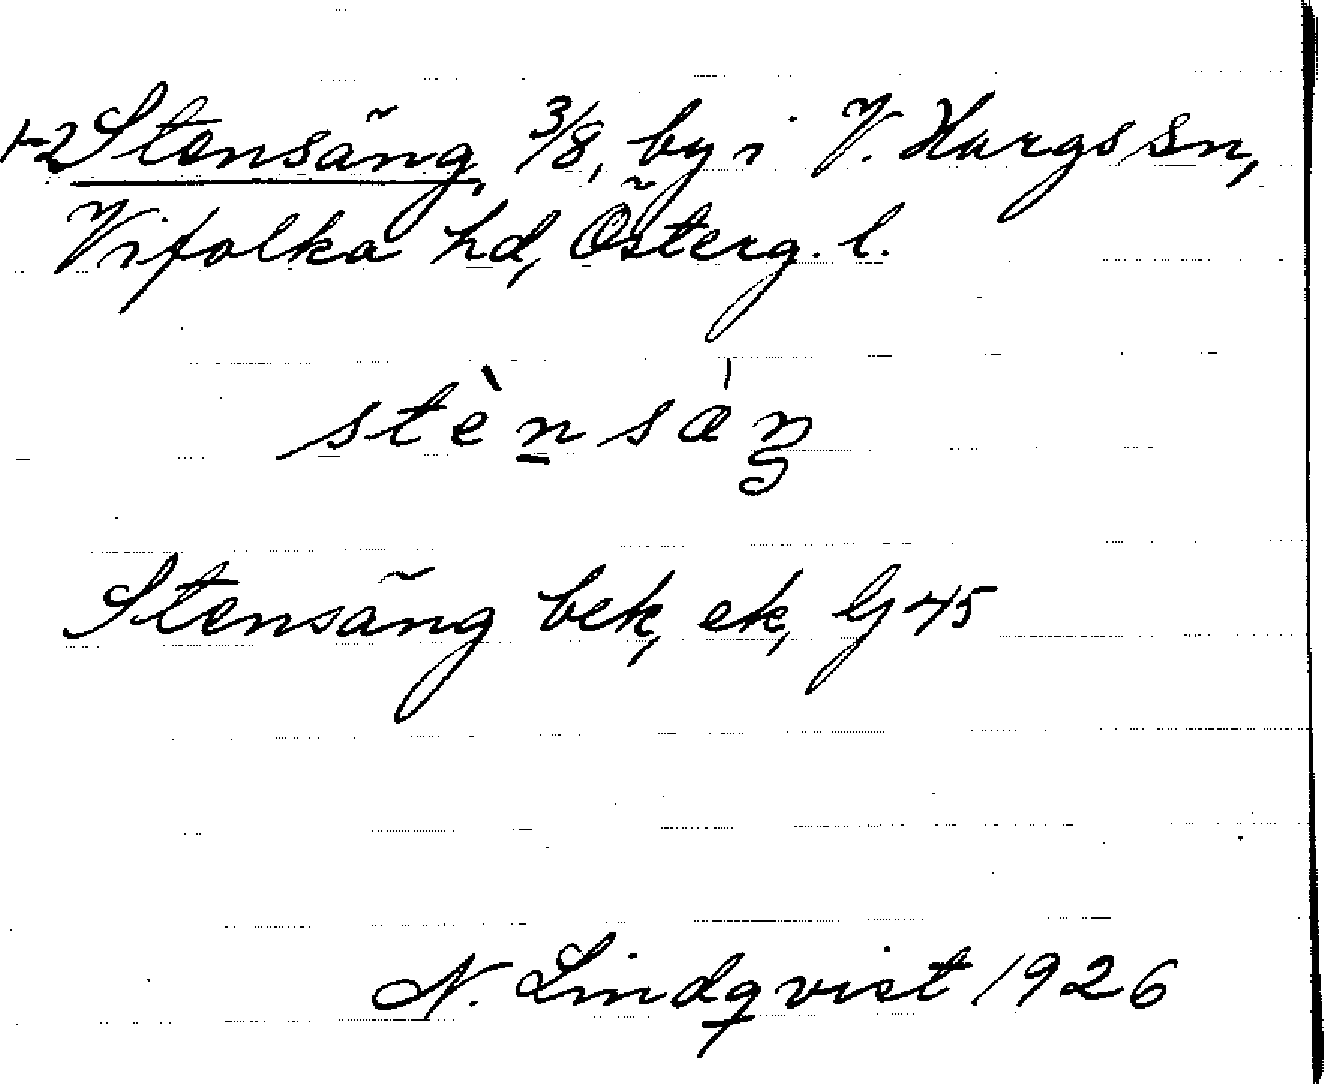 1-2 Stensäng, 3/8, by i V. Hargs sn,
Vifolka hd, Österg. l.
stènsàŋ
Stensäng bek, ek, G 45
N. Lindqvist 1926